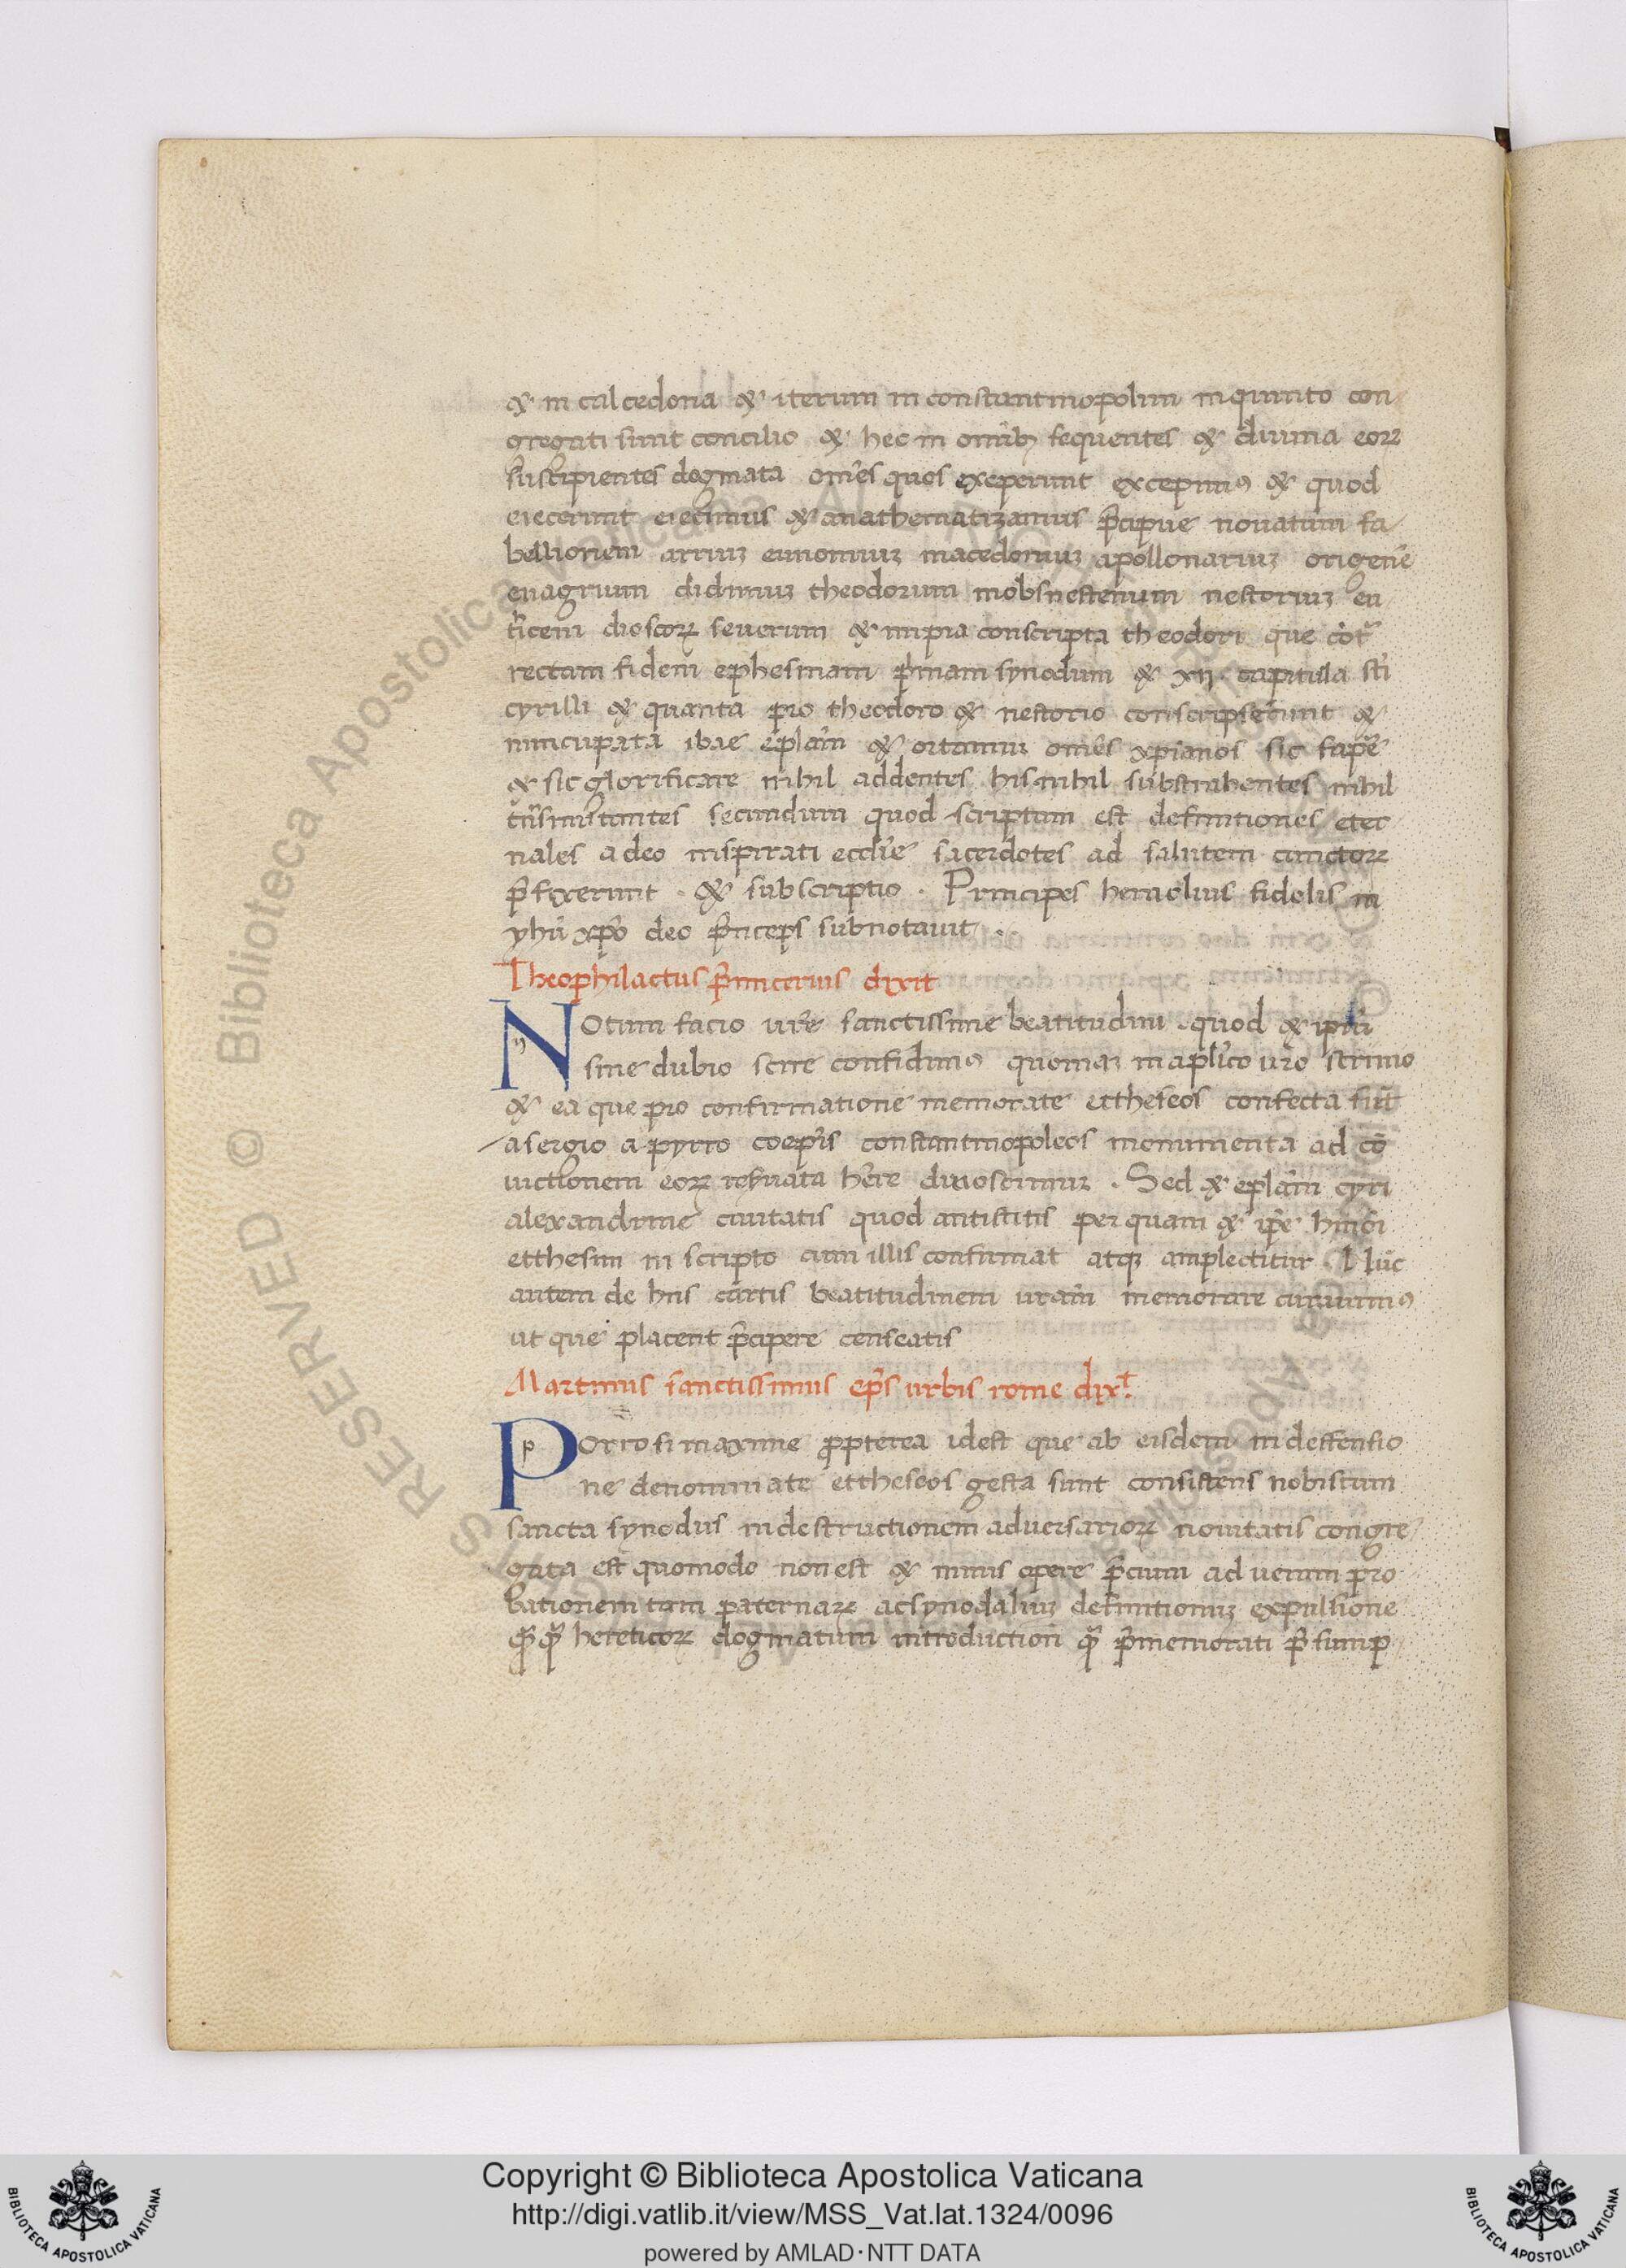 & in calcedona & iterum in constantinopolim in quinto con
gregati sunt concilio & hec in omib; sequentes & diuina eorꝝ
suscipientes dogmata om̄es quos exeperunt excepimꝰ & quod
eiecerunt eiecimus & anathematizamus p̄cipue nouatum sa
bellionem arriuꝫ eunomiuꝫ macedoniuꝫ apollonariuꝫ origenē
euagrium didimuꝫ theodorum mobsnestenum nestoriuꝫ eu
ticem dioscorꝝ seuerum & impia conscripta theodori que cōtͣ
rectam fidem ephesinam pͥmam synodum & xij capitula sc̄i
cyrilli & quanta pro theodoro & nestorio conscripserunt &
nuncupata ibae ep̄lam & ortamu om̄es xp̄ianos sic sapē
& sic glorificare nihil addentes his nihil substrahentes nihil
tn̄smutantes secundum quod scriptum est definitiones eter
nales a deo inspirati eccl̄ie sacerdotes ad salutem cunctorꝝ
p̄fixerunt . & subscriptio . Principes hemolius fidelis in
yhū xp̄o deo pͥnceps subnotauit .
Theophilactus pͥmicerius dixit
NOtum facio ur̄e sanctissime beatitudini quod & ip̄m
sine dubio scire confidimꝰ quoniaꝫ in apl̄ico ur̄o scrinio
& ea que pro confirmatione memorate ettheseos confecta sūt
a sergio a pyrro coep̄is constantinopoleos monumenta ad cō
uictionem eorꝝ reseruata hēre dinoscimur . Sed & ep̄lam cyri
alexandrine ciuitatis quod antistitis per quam & ip̄e hmōi
etthesim in scripto cum illis confirmat atqꝫ amplectitur Nūc
autem de hiis cartis beatitudinem ur̄am memorare curauimꝰ
ut que placent p̄cipere censeatis
Martinus sanctissimus ep̄s urbis rome dixt.
POrro si maxime propterea idest que ab eisdem in deffensio
ne denominate ettheseos gesta sunt consistens nobiscum
sancta synodus in destructionem aduersariorꝝ nouitatis congre
gata est quomodo non est & nimis opere p̄cium ad uerum pro
bationem tam paternarꝝ ac synodaliuꝫ definitionuꝫ expulsione
qͣqͣ hereticorꝝ dogmatum introduction qͣ p̄memorati p̄sump
Copyright © Biblioteca Apostolica Vaticana
http://digi.vatlib.it/view/MSS_Vat.lat.1324/0096
powered by AMLAD·NTT DATA
BIBLIOTECA APOSTOLICA VATICANA
BIBLIOTECA APOSTOLICA VATICANA